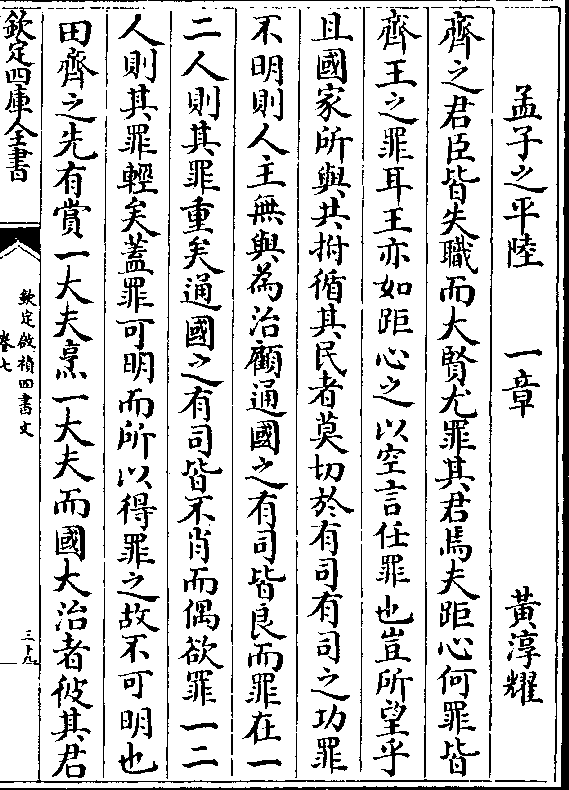 孟子之平陸　一章　黃淳耀
齊之君臣皆失職而大賢尤罪其君焉夫距心何罪皆
齊王之罪耳王亦如距心之以空言任罪也豈所望乎
且國家所與共拊循其民者莫切於有司有司之功罪
不明則人主無與為治顧通國之有司皆良而罪在一
二人則其罪重矣通國之有司皆不肖而偶欲罪一二
人則其罪輕矣蓋罪可明而所以得罪之故不可明也
田齊之先有賞一大夫烹一大夫而國大治者彼其君
欽定四庫全書
欽定啟禎四書文
卷七
三十九